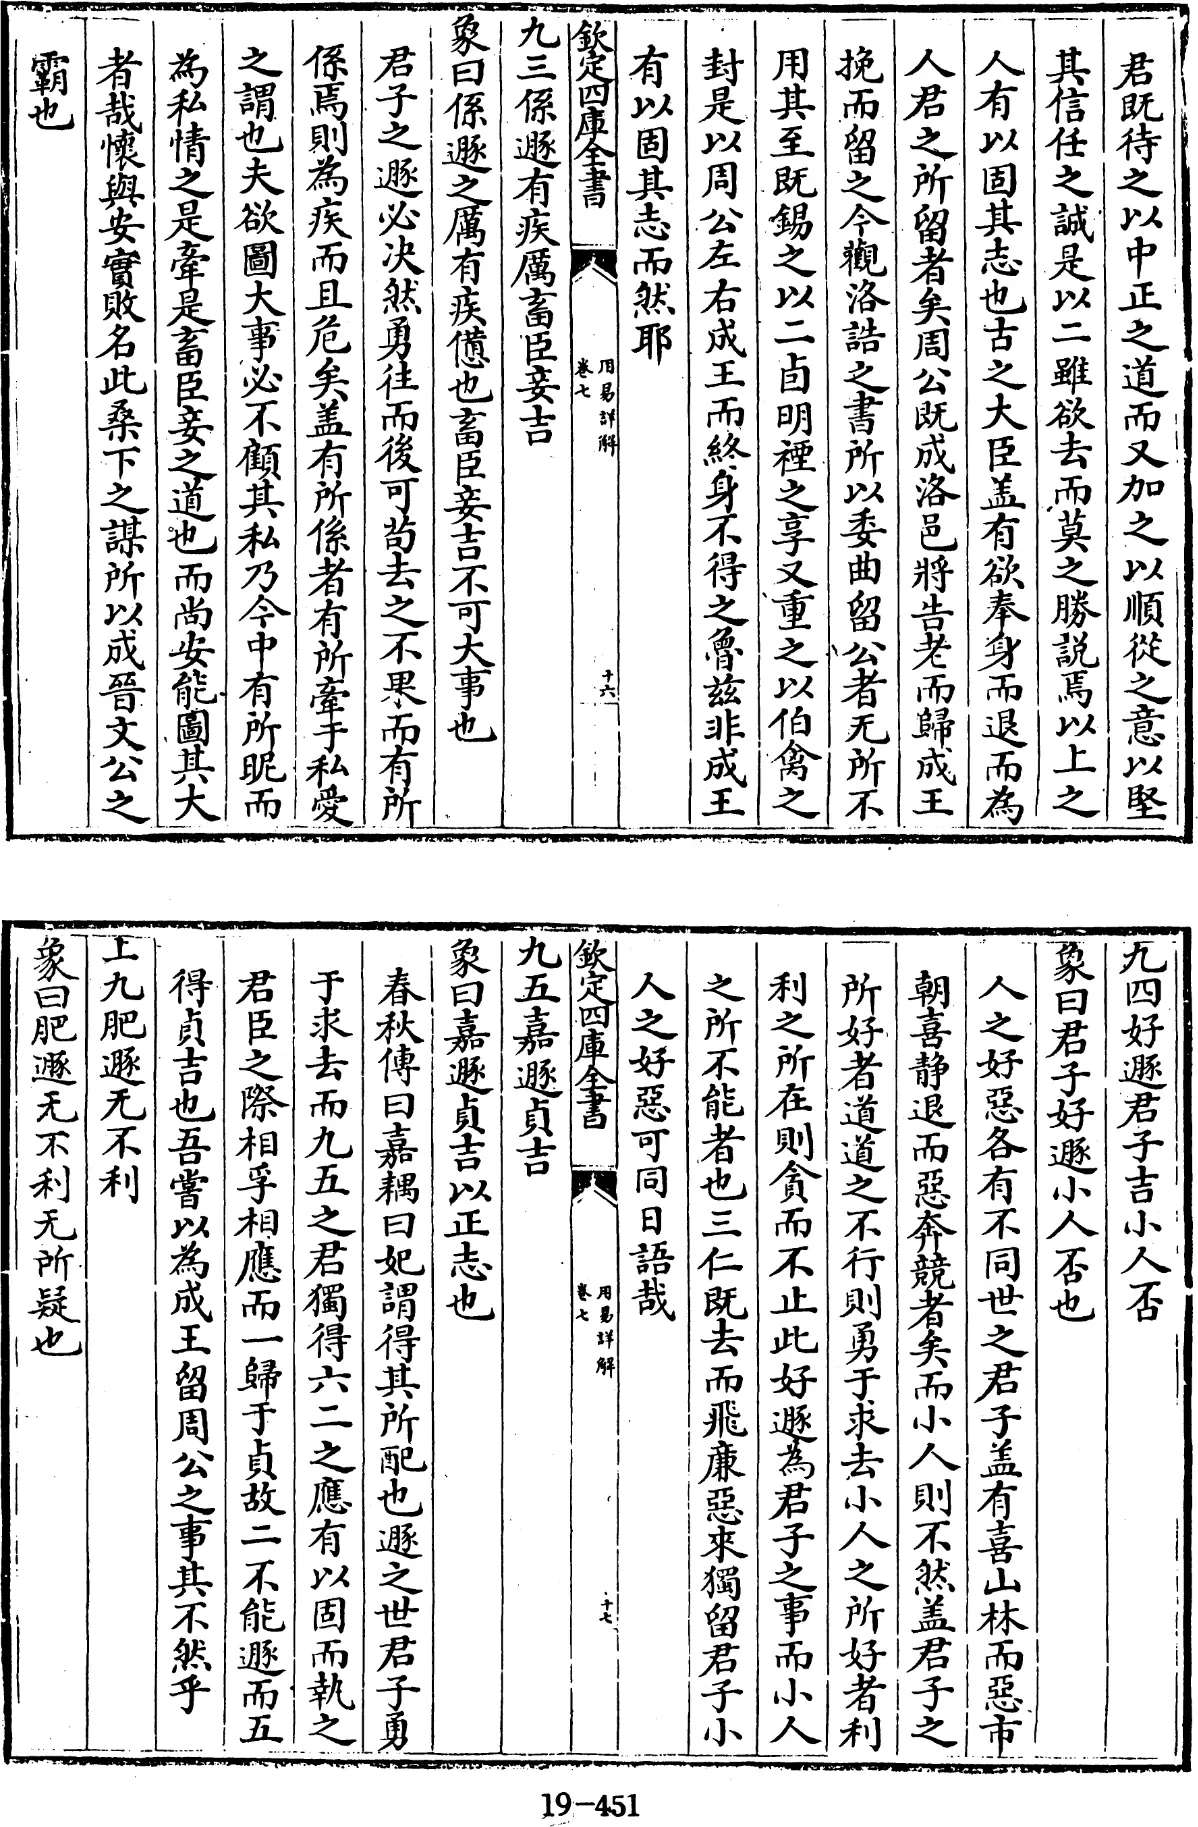 君既待之以中正之道而又加之以順從之意以堅
其信任之誠是以二雖欲去而莫之勝説焉以上之
人有以固其志也古之大臣盖有欲奉身而退而為
人君之所留者矣周公既成洛邑將告老而歸成王
挽而留之今觀洛誥之書所以委曲留公者无所不
用其至既錫之以二卣明禋之享又重之以伯禽之
封是以周公左右成王而終身不得之魯兹非成王
有以固其志而然耶
欽定四庫全書
周易詳解
卷七
十六
九三係遯有疾厲畜臣妾吉
象曰係遯之厲有疾憊也畜臣妾吉不可大事也
君子之遯必决然勇往而後可茍去之不果而有所
係焉則為疾而且危矣盖有所係者有所牽于私愛
之謂也夫欲圖大事必不顧其私乃今中有所昵而
為私情之是牽是畜臣妾之道也而尚安能圖其大
者哉懷與安實敗名此桑下之謀所以成晉文公之
霸也
九四好遯君子吉小人否
象曰君子好遯小人否也
人之好惡各有不同世之君子盖有喜山林而惡市
朝喜静退而惡奔競者矣而小人則不然盖君子之
所好者道道之不行則勇于求去小人之所好者利
利之所在則貪而不止此好遯為君子之事而小人
之所不能者也三仁既去而飛廉惡來獨留君子小
人之好惡可同日語哉
欽定四庫全書
周易詳解
卷七
十七
九五嘉遯貞吉
象曰嘉遯貞吉以正志也
春秋傳曰嘉耦曰妃謂得其所配也遯之世君子勇
于求去而九五之君獨得六二之應有以固而執之
君臣之際相孚相應而一歸于貞故二不能遯而五
得貞吉也吾嘗以為成王留周公之事其不然乎
上九肥遯无不利
象曰肥遯无不利无所疑也
19-451